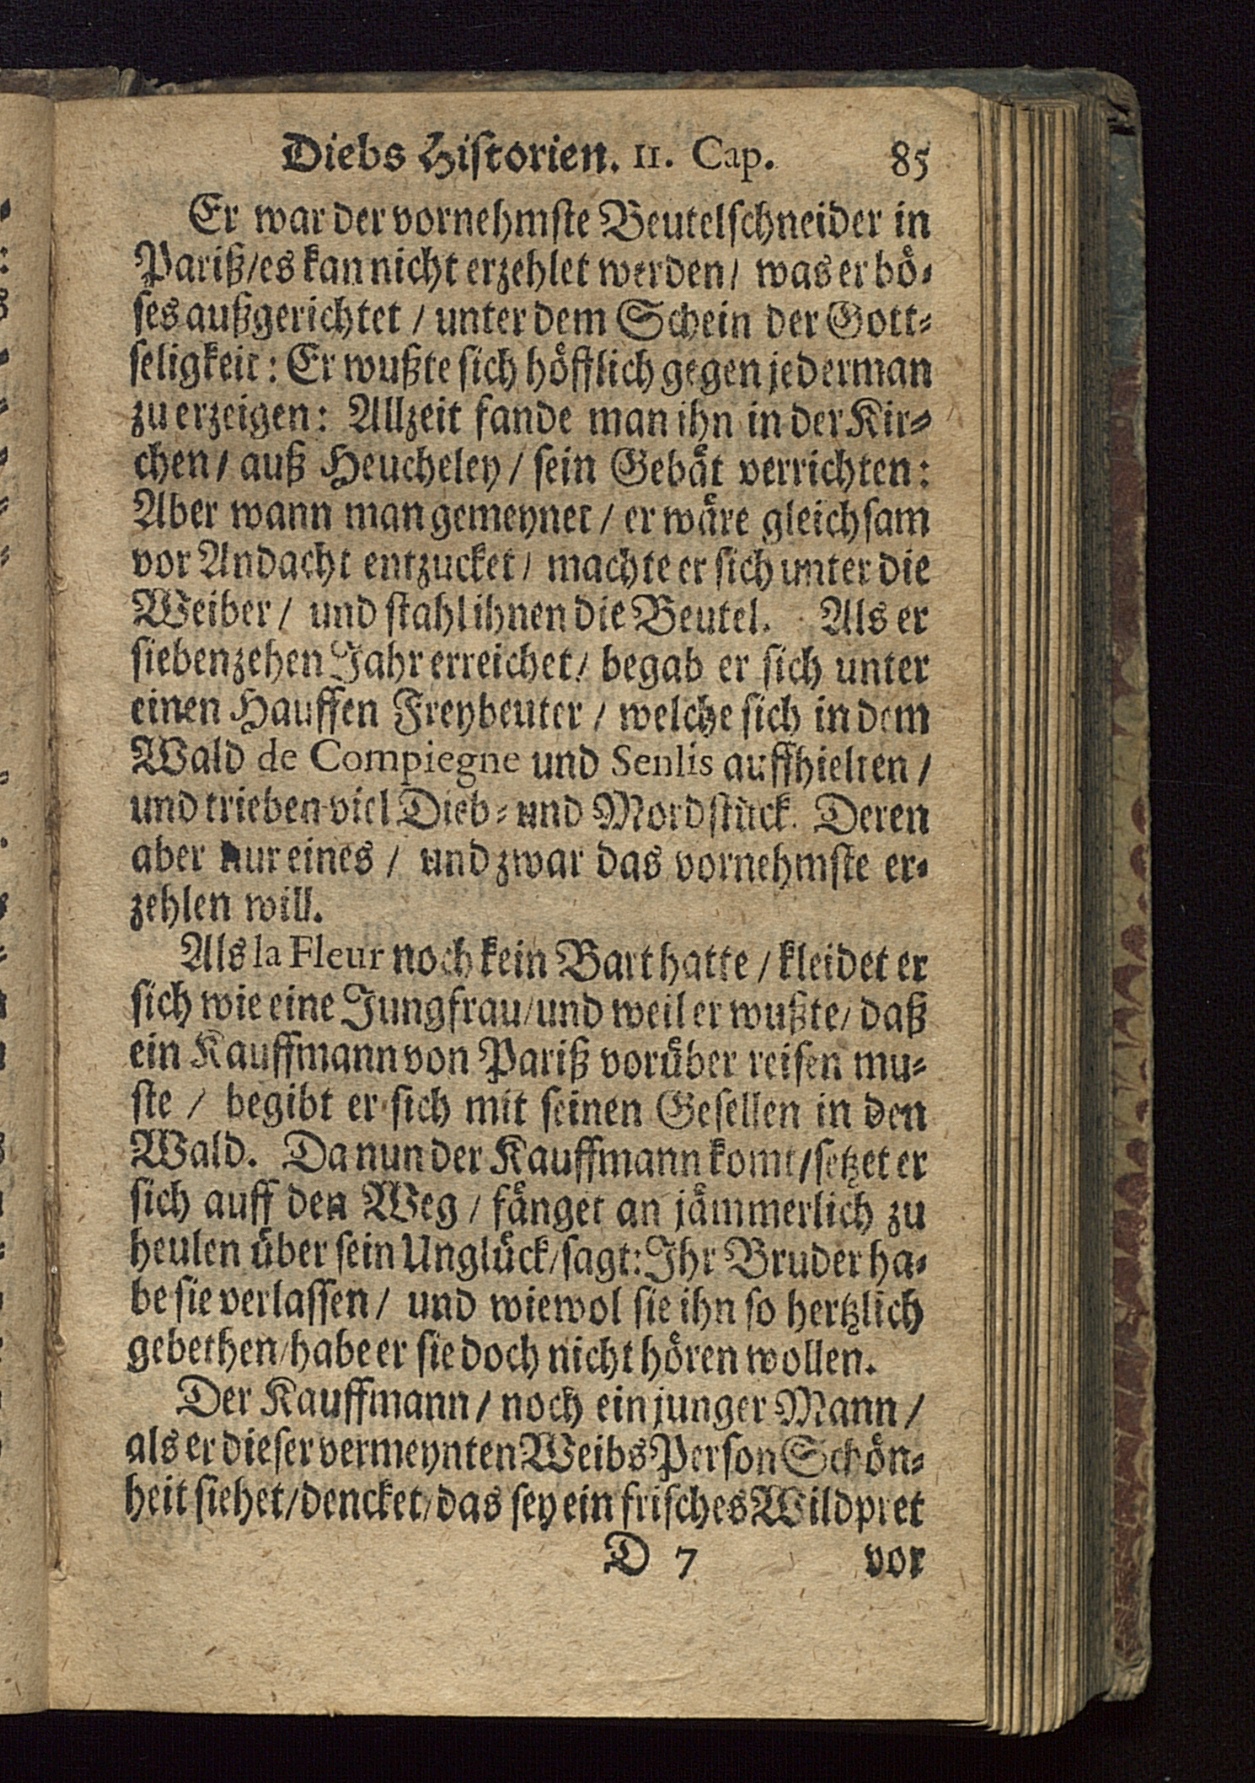 Diebs Historien. II. Cap. 85
Er war der vornehmste Beutelschneider in
Pariß/es kan nicht erzehlet werden/ was er bö-
ses außgerichtet / unter dem Schein der Gott-
seligkeit: Er wußte sich höfflich gegen jederman
zu erzeigen: Allzeit fande man ihn in der Kir-
chen/ auß Heucheley/ sein Gebät verrichten:
Aber wann man gemeynet / er wäre gleichsam
vor Andacht entzucket/ machte er sich unter die
Weiber/ und stahl ihnen die Beutel. Als er
siebenzehen Jahr erreichet/ begab er sich unter
einen Hauffen Freybeuter / welche sich in dem
Wald de Compiegne und Senlis auffhielten /
und trieben viel Dieb- und Mordstück. Deren
aber nur eines / und zwar das vornehmste er-
zehlen will.
Als la Fleur noch kein Bart hatte / kleidet er
sich wie eine Jungfrau/und weil er wußte/ daß
ein Kauffmann von Pariß vorüber reisen mu-
ste / begibt er sich mit seinen Gesellen in den
Wald. Da nun der Kauffmann komt/setzet er
sich auff den Weg / fänget an jämmerlich zu
heulen über sein Unglück/sagt: Ihr Bruder ha-
be sie verlassen/ und wiewol sie ihn so hertzlich
gebethen/habe er sie doch nicht hören wollen.
Der Kauffmann / noch ein junger Mann /
als er dieser vermeynten Weibs Person Schön-
heit siehet/dencket/das sey ein frisches Wildpret
D 7 vor